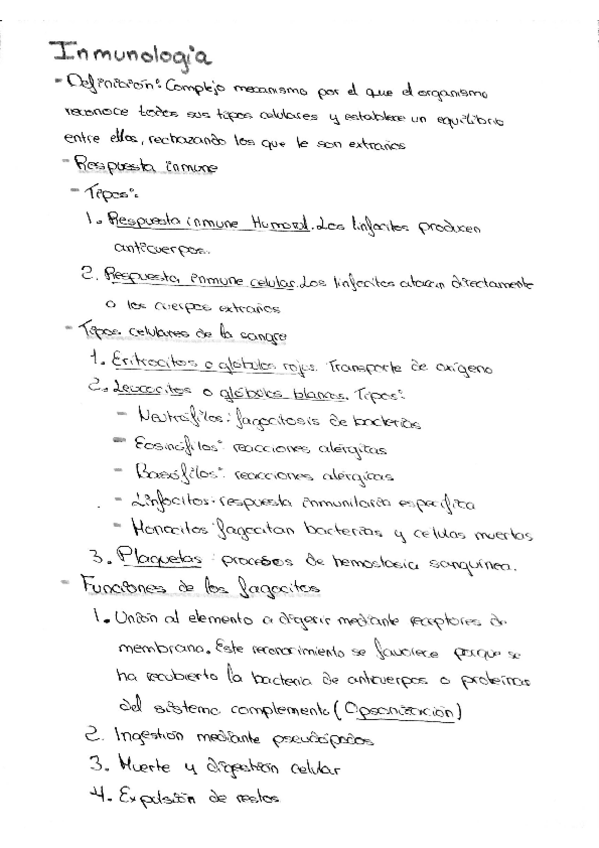 Inmunología
- Definición: Complejo mecanismo por el que el organismo
reconoce todos sus tipos celulares y establece un equilibrio
entre ellos, rechazando los que le son extraños
- Respuesta inmune
- Tipos:
1. Respuesta inmune Humoral. Los linfocitos producen
anticuerpos.
2. Respuesta inmune celular. Los linfocitos atacan directamente
a los cuerpos extraños
- Tipos celulares de la sangre
1. Eritrocitos o glóbulos rojos. Transporte de oxígeno
2. Leucocitos o glóbulos blancos. Tipos:
- Neutrófilos: fagocitosis de bacterias
- Eosinófilos: reacciones alérgicas
- Basófilos: reacciones alérgicas
- Linfocitos: respuesta inmunitaria específica
- Monocitos fagocitan bacterias y celulas muertas
3. Plaquetas: procesos de hemostasia sanguínea.
- Funciones de los fagocitos
1. Unión al elemento a digerir mediante receptores de
membrana. Este reconocimiento se favorece porque se
ha recubierto la bacteria de anticuerpos o proteínas
del sistema complemento (Opsonización)
2. Ingestión mediante pseudópodos
3. Muerte y digestión celular
4. Expulsión de restos